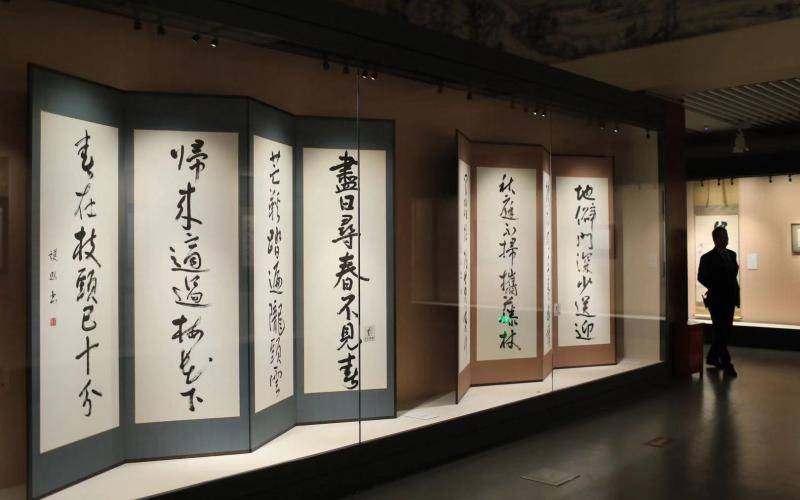 盡日尋春不見春
芒鞋踏遍隴頭雲
帰来適過梅花下
春在枝頭已十分
護熙書
地僻門深少送迎
秋庭不掃攜藤杖